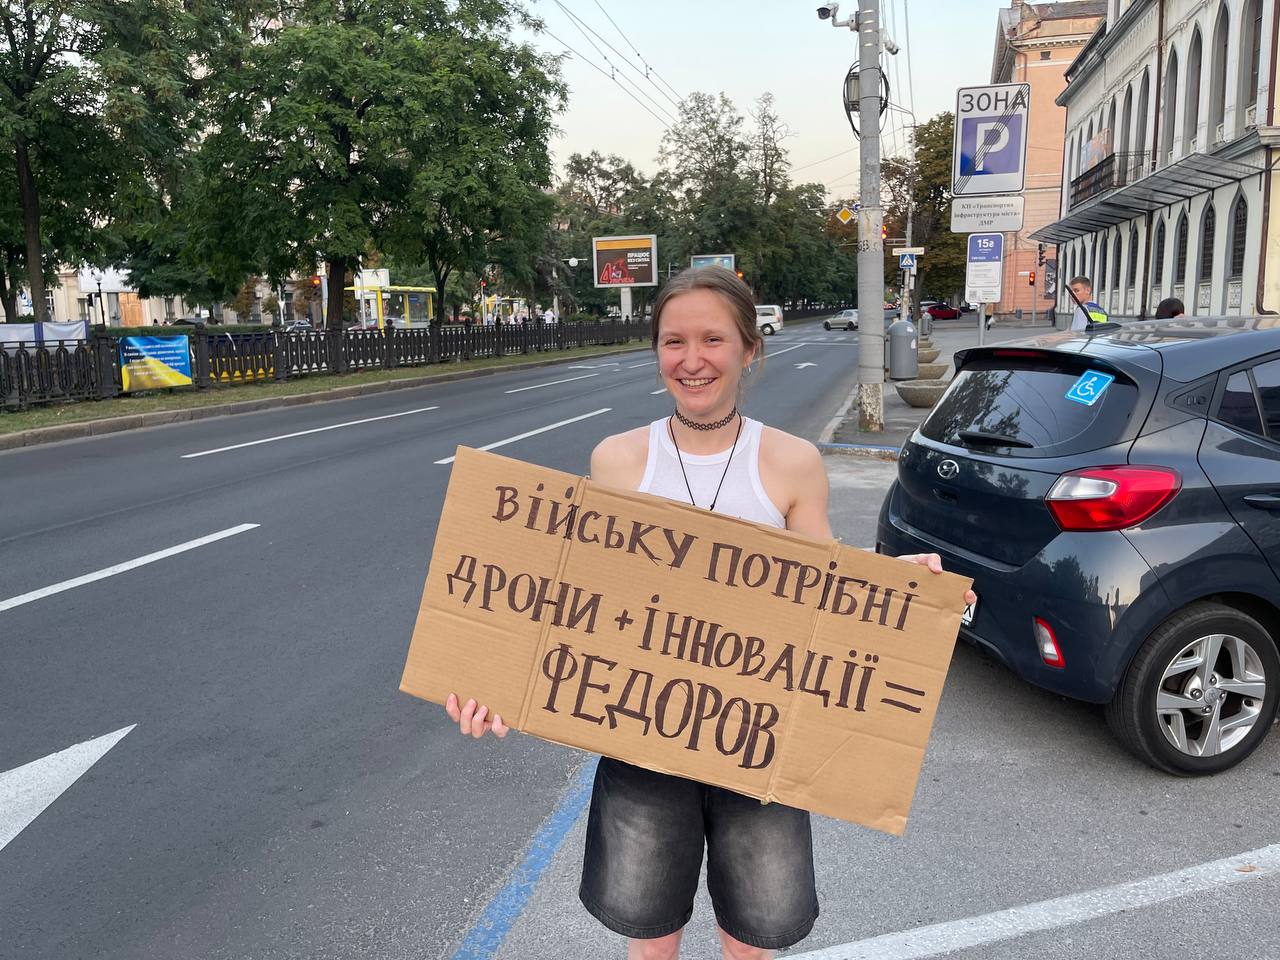 ЗОНА
P
КП «Транспортна
інфраструктура міста»
ДМР
15₴
ПРАЦЮЄ
ВІЙСЬКУ ПОТРІБНІ
ДРОНИ + ІННОВАЦІЇ =
ФЕДОРОВ
i10